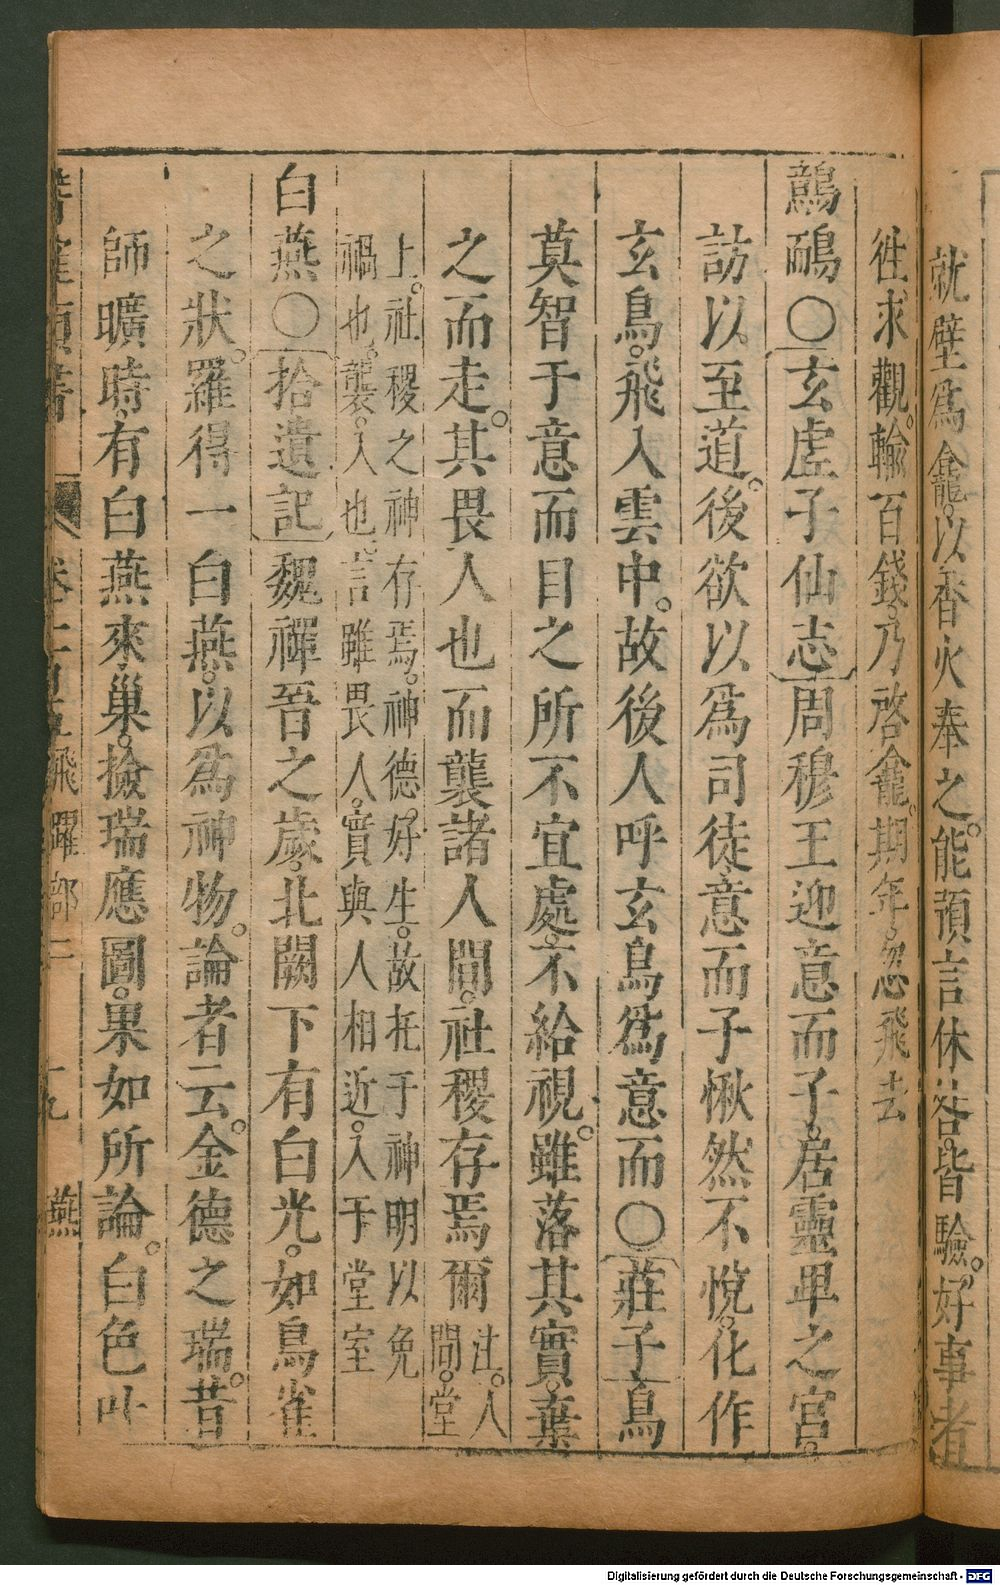 就壁爲龕。以香火奉之。能預言休咎。皆驗。好事者
徃求觀。輸百錢。乃啓龕。期年。忽飛去
鷾鴯○玄虛子仙志周穆王迎意而子。居靈𤰞之宮。
訪以至道。後欲以爲司徒。意而子愀然不悅。化作
玄鳥。飛入雲中。故後人呼玄鳥爲意而○莊子鳥
莫智于意而目之所不宜處。不給視。雖落其實。棄
之而走。其畏人也而襲諸人間。社稷存焉爾
注。人
間。堂
上。社稷之神存焉。神德好生。故托于神明以免
禍也。襲。入也。言雖畏人。實與人相近。入于堂室
白燕○拾遺記魏禪晉之歲。北闕下有白光。如鳥雀
之狀。羅得一白燕。以爲神物。論者云。金德之瑞。昔
師曠時。有白燕來巢。撿瑞應圖。果如所論。白色叶
飛躍部二 十九 燕
Digitalisierung gefördert durch die Deutsche Forschungsgemeinschaft - DFG